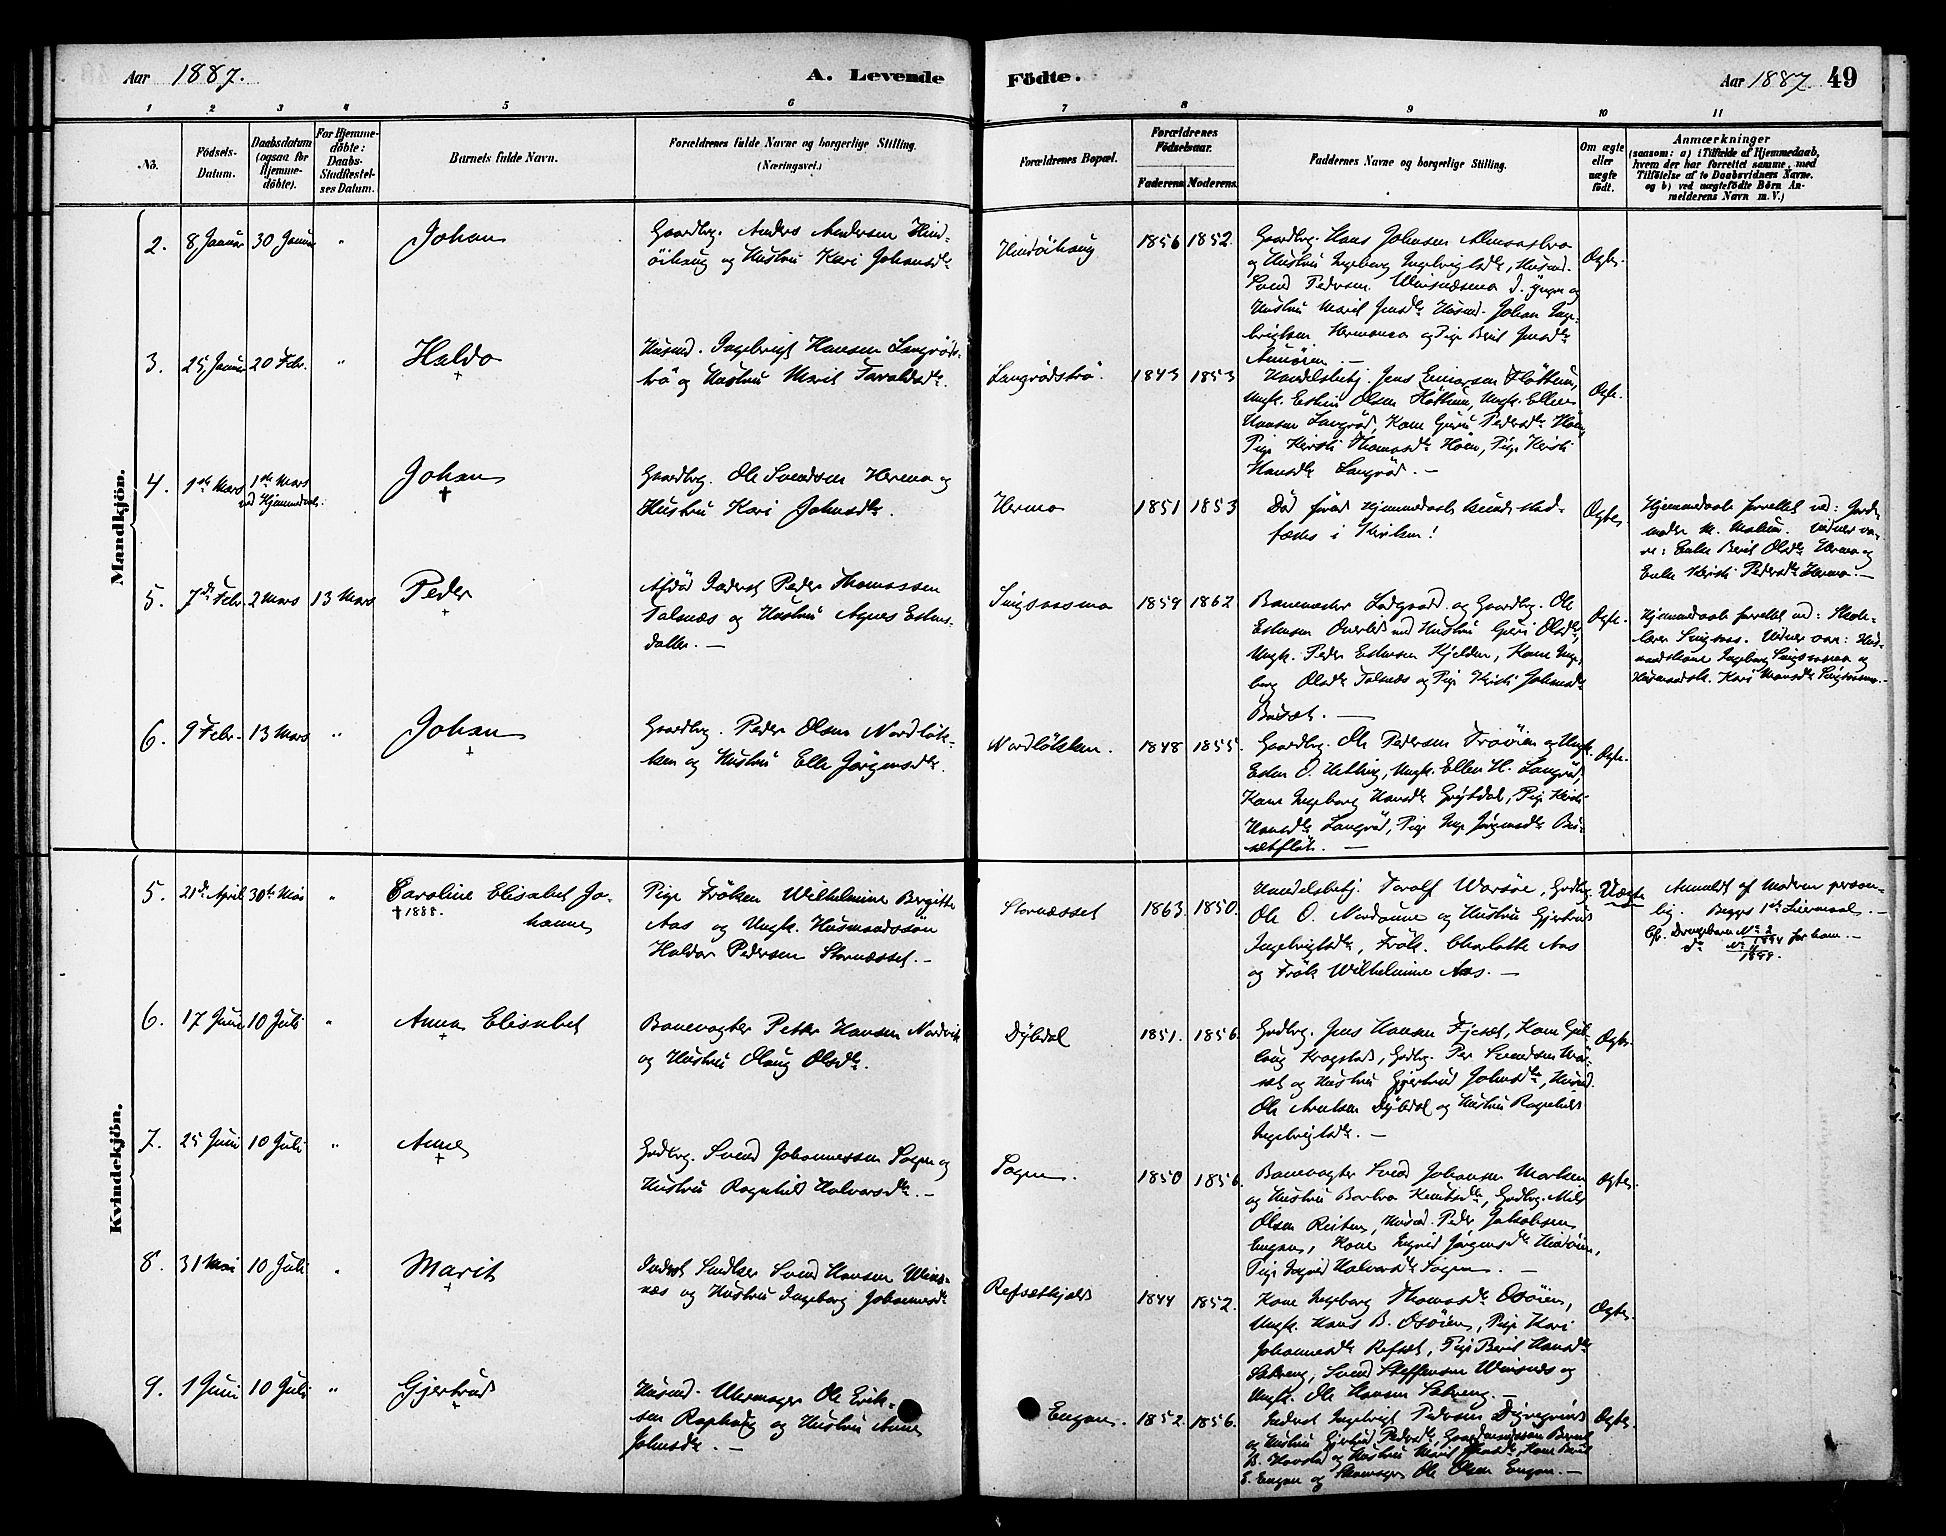 Aar 1887.
A. Levende
Födte.
Aar 1887. 49
1 2 3 4 5 6 7 8 9 10 11
No.
Födsels-
Datum.
Daabsdatum
(ogsaa for
Hjemme-
döbte).
For Hjemme-
döbte:
Daabs-
Stadfestel-
ses Datum.
Barnets fulde Navn.
Forældrenes fulde Navne og borgerlige Stilling.
(Næringsvei.)
Forældrenes Bopæl.
Forældrenes
Födselsaar.
Faderens. Moderens.
Faddernes Navne og borgerlige Stilling.
Om ægte
eller
uægte
födt.
Anmærkninger
(saasom: a) i Tilfælde af Hjemmedaab,
hvem der har forrettet samme, med
Tilföielse af to Daabsvidners Navne,
og b) ved uægtefödte Börn An-
melderens Navn m. V.)
Mandkjön.
2. 8 Januar 30 Januar " Johan
Gaardbrg. Anders Andersen Hind-
öihaug og Hustru Kari Johansdtr
Hindöihaug 1856 1852.
Gaardbrg. Hans Johnsen
og Hustru Ingeborg Ingebrigtsdtr, Husmd.
Svend Pedersen og
Hustru Marit Jensdtr Husmd. Johan Inge-
brigtsen Hermoen og Pige Berit Jensdtr
Ægte.
3. 25 Januar 20 Febr. " Haldo +
Husmd. Ingebrigt Hansen Langröds-
trö og Hustru Marit Taraldsdtr.
Langrödströ. 1843 1853
Handelsbetj. Jens Einarsen Flöttum,
Ungk. Esten Olsen Flöttum, Ungk. Ellen
Hansen Langröd, Kone Guru Pedersdtr Höen,
Pige Kirsti Thomasdtr Höen, Pige Kirsti
Hansdtr Langröd. —
Ægte.
4. 1ste Mars 1ste Mars
ved Hjemmedaab.
Johan +
Gaardbrg. Ole Svendsen Hermo og
Hustru Kari Johnsdtr.
Hermo 1851 1853
Död förend Hjemmedaab kunde stad-
fæstes i Kirken!
Ægte.
Hjemmedaab forrettet ved: Jorde-
moder M. Mohun. Vidner va-
re: Enke Berit Olsdtr Hermo og
Enke Kirsti Pedersdtr Hermo. —
5. 7de Febr. 2 Mars 13 Mars Peder
Afdöd Inderst Peder Thomassen
Talsnæs og Hustru Agnes Estens-
datter. —
Singsaasmo 1859 1862
Banemester Ladgaard og Gaardbrg. Ole
Estensen Overlid med Hustru Guri Olsdtr,
Ungk. Peder Estensen Kjelden, Kone Inge-
borg Olsdtr Talsnæs og Pige Kirsti Johnsdtr
Busæt. —
Ægte.
Hjemmedaab forrettet ved: Skole-
lærer Singsaas. Vidner var: Hus-
mandskone Ingeborg Singsaasmo og
Husmandsk. Kari Hansdtr Singsaasmo. —
6. 9 Febr. 13 Mars " Johan +
Gaardbrg. Peder Olsen Nordlök-
ken og Hustru Elle Jörgensdtr.
Nordlökken. 1848 1855.
Gaardbrg. Ole Pedersen Trööien og Ungk.
Esten O. Hetting, Ungk. Ellen H. Langröd,
Kone Ingeborg Hansdtr Grytdal, Pige Kirsti
Hansdtr Langröd, Pige Inge Jörgensdtr Bu-
sætflöt. —
Ægte.
Kvindekjön.
5. 21de April 30te Mai " Caroline Elisabet Jo-
+ 1888. hanne
Pige Fröken Wilhelmine Bergitte
Aas og Ungk. Husmandssön
Haldor Pedersen Stornæsset. —
Stornæsset 1863. 1850.
Handelsbetj. Taralf Warsöe, Gdbrg.
Ole O. Nordaune og Hustru Gjertrud
Ingebrigtsdtr, Frök. Charlotte Aas
og Frök. Wilhelmine Aas. —
Uægte
Anmeldt af Moderen person-
lig. Begges 1ste Leiermaal. —
Cfr. No 2
1894 for ham. —
1899.
6. 17 Juni 10 Juli " Anna Elisabet +
Banevogter Petter Hansen Nordvik
og Hustru Olaug Olsdtr.
Dybdal 1851. 1856.
Gdbrg. Jens Hansen Fjeset, Kone Gul-
laug Kragstad, Gdbrg. Per Svendsen
og Hustru Gjertrud Johnsdtr, Husmd.
Ole Arntsen Dybdal og Hustru Ragnhild
Ingebrigtsdtr. —
Ægte.
7. 25 Juni 10 Juli " Anne +
Gdbrg. Svend Johannessen Sogn og
Hustru Ragnhild Halvorsdtr. —
Sogn. 1850 1856.
Banevogter Svend Johansen Morken
og Hustru Barbra Knutsdtr, Gdbrg. Nils
Olsen Reitan, Husmd. Peder Jakobsen
Engan, Kone Ingrid Jörgensdtr Hindöien,
Pige Ingrid Halvorsdtr Sogn. —
Ægte.
8. 31 Mai 10 Juli " Marit +
Inderst Snedker Svend Hansen Wins-
næs og Hustru Ingeborg Johannesdtr
Refsætkjeld 1844 1852.
Kone Ingeborg Thomasdtr Osöien,
Ungk. Hans B. Osöien, Pige Kari
Johannesdtr Refset, Pige Berit Hansdtr
Svend Steffensen Winsnæs og
Ungk. Ole Hansen —
Ægte.
9. 1 Juni 10 Juli " Gjertrud +
Husmd. Uhrmager Ole Erik-
sen Raphaug og Hustru Anne
Johnsdtr. —
Engan. 1852. 1856.
Inderst Ingebrigt Pedersen
og Hustru Gjertrud Pedersdtr, Gaardmandssön Bernt
B. Hovstad og Hustru Marit Jensdtr, Kone Berit
E. Engan og Skomager Ole Olsen Engan. —
Ægte.